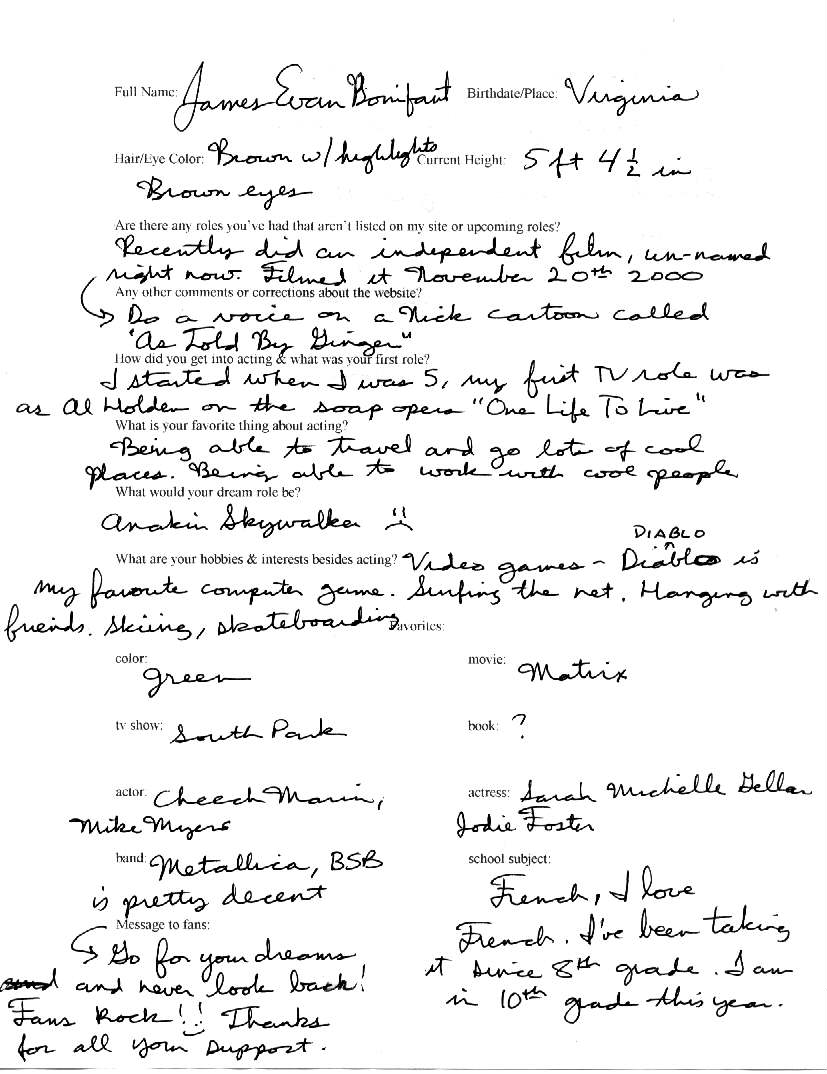 Full Name: James Evan Bonifant Birthdate/Place: Virginia
Hair/Eye Color: Brown w/ highlights Current Height: 5 ft 4 1/2 in
Brown eyes
Are there any roles you've had that aren't listed on my site or upcoming roles?
Recently did an independent film, un-named
right now. Filmed it November 20th 2000
Any other comments or corrections about the website?
Do a voice on a Nick cartoon called
"As Told By Ginger"
How did you get into acting & what was your first role?
I started when I was 5, my first TV role was
as Al Holden on the soap opera "One Life To Live"
What is your favorite thing about acting?
Being able to travel and go lots of cool
places. Being able to work with cool people
What would your dream role be?
Anakin Skywalker
DIABLO
What are your hobbies & interests besides acting? Video games - Diablo is
my favorite computer game. Surfing the net. Hanging with
friends. Skiing, skateboarding Favorites:
color: green
movie: Matrix
tv show: South Park
book: ?
actor: Cheech Marin,
Mike Myers
actress: Sarah Michelle Gellar
Jodie Foster
band: Metallica, BSB
is pretty decent
school subject:
French, I love
French. I've been taking
it since 8th grade. I am
in 10th grade this year.
Message to fans:
Go for your dreams
and and never look back!
Fans Rock!! Thanks
for all your support.